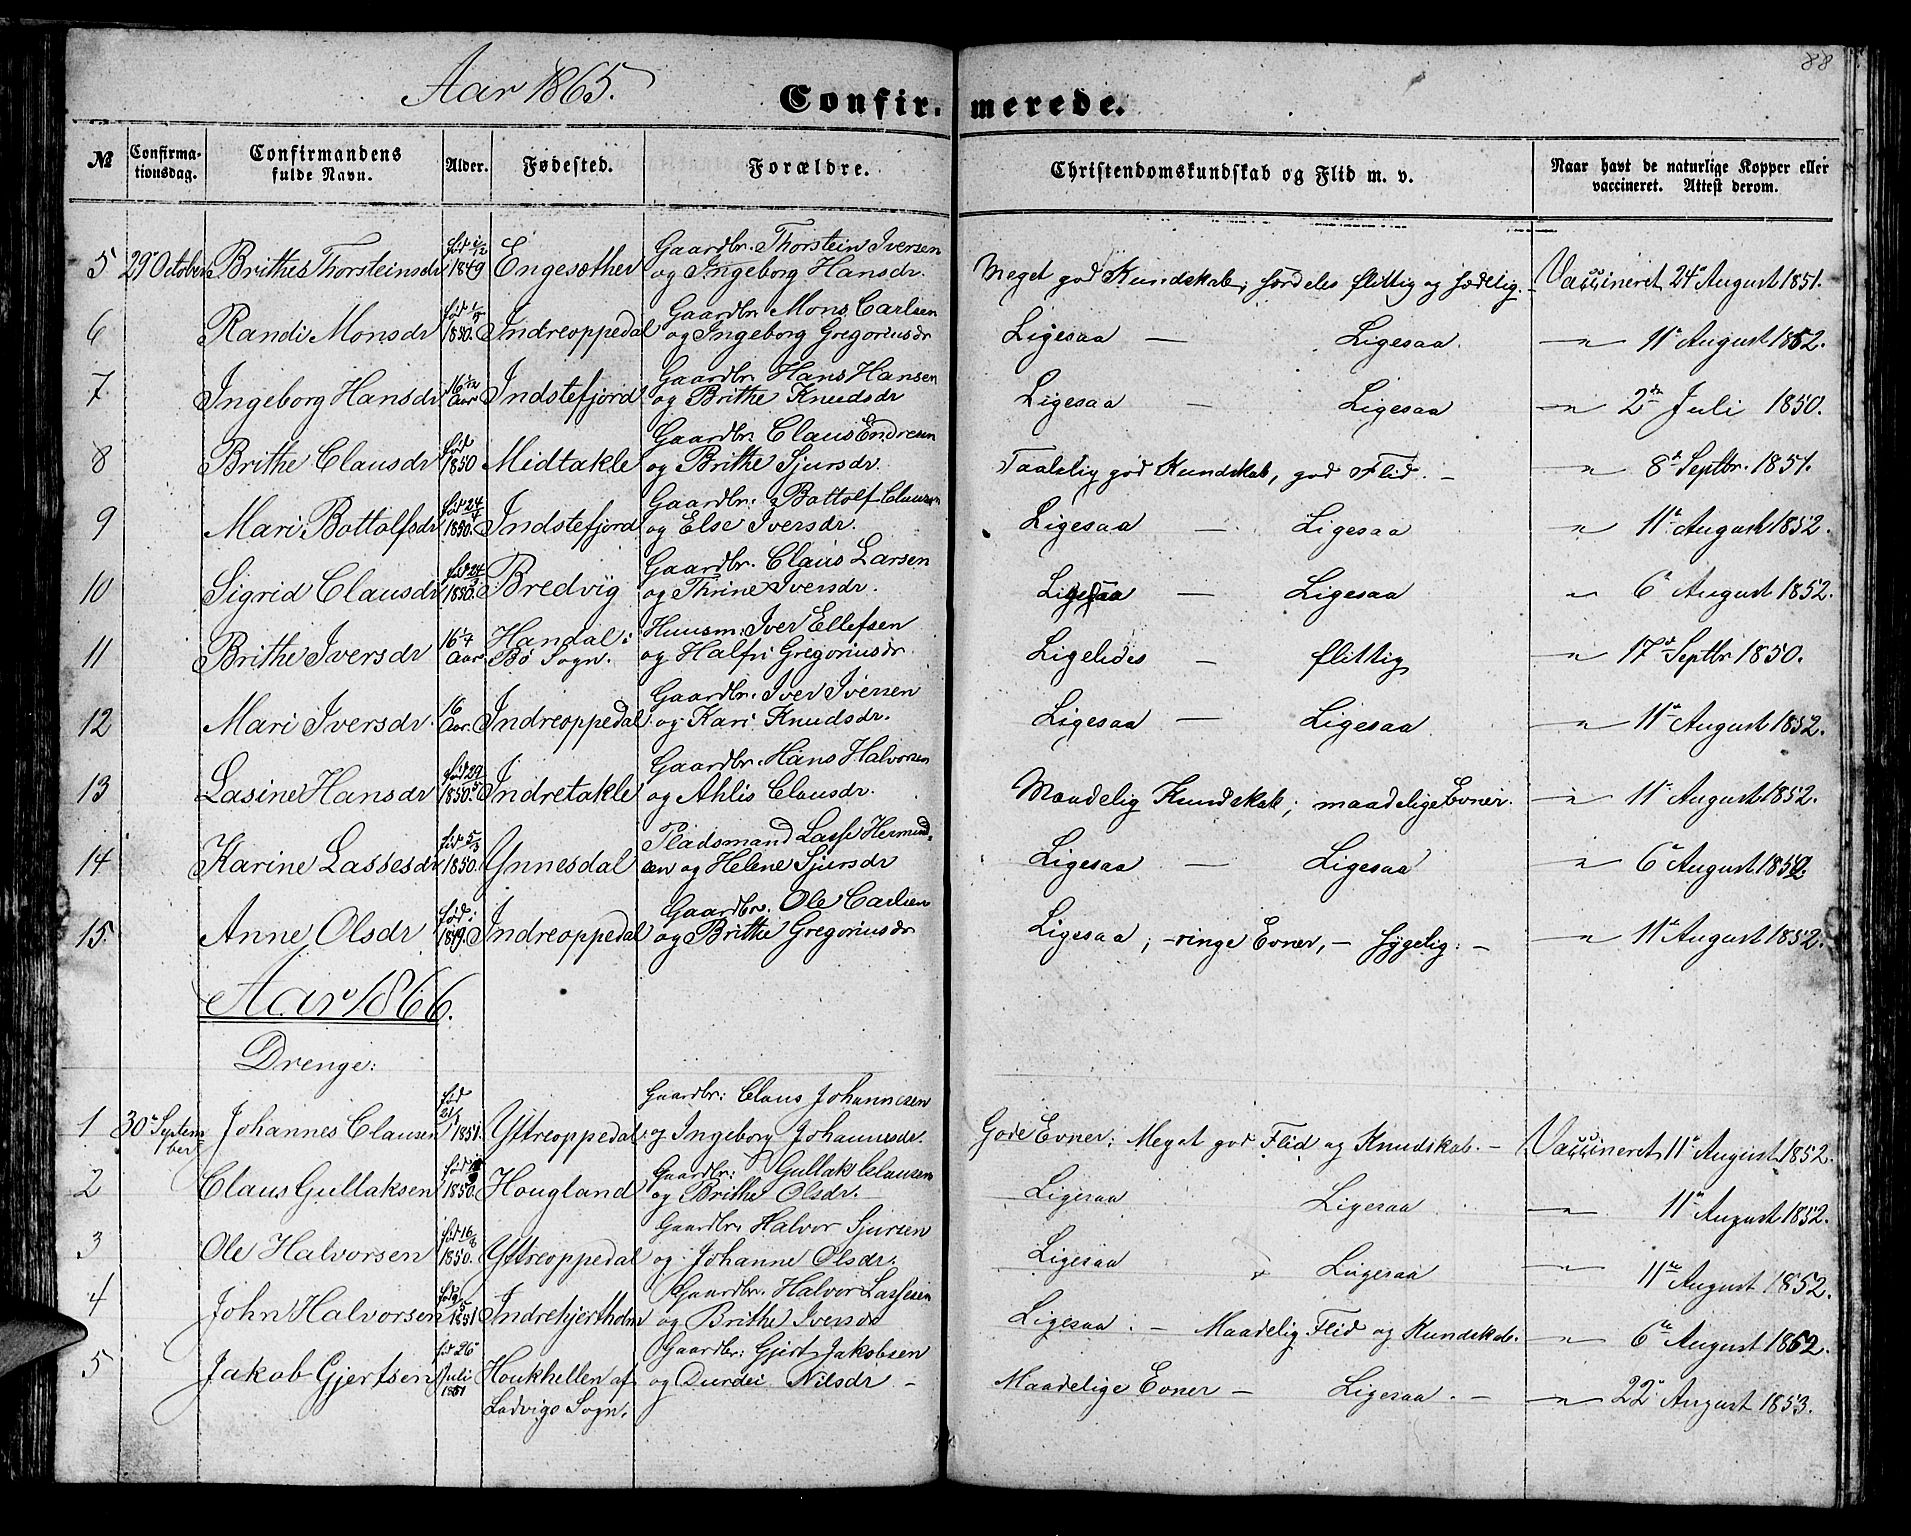 88
Aar 1865.
Confirmerede.
№ Confirmationsdag. Confirmandens fulde Navn. Alder. Fødested. Forældre. Christendomskundskab og Flid m. v. Naar havt de naturlige Kopper eller vaccineret. Attest derom.
5 29 October Brithe Thorsteinsdr 1849 Engesæther Gaardbr. Thorstein Iversen
og Ingeborg Hansdr. Meget god Kundskab; særdeles flittig og sædelig. – Vaccineret 24 August 1851.
6 Randi Monsdr 1850. Indreoppedal Gaardbr. Mons Carlsen
og Ingeborg Gregoriusdr Ligesaa — Ligesaa. —"— 11 August 1852.
7. Ingeborg Hansdr 16 Aar Indstefjord Gaardbr. Hans Hansen
og Brithe Knudsdr Ligesaa — Ligesaa —"— 2den Juli 1850.
8 Brithe Clausdr fød 1850 Midtakle Gaardbr. Claus Endresen
og Brithe Sjursdr. Taalelig god Kundskab, god Flid. — —"— 8 Septbr. 1851.
9 Mari Bottolfsdr fød 24/4 1850. Indstefjord Gaardbr: Bottolf Clausen
og Else Iversdr. Ligesaa — Ligesaa —"— 11 August 1852.
10 Sigrid Clausdr fød 24 1850. Bredvig Gaardbr. Claus Larsen
og Thrine Iversdr. Ligesaa — Ligesaa —"— 6 August 1852.
11 Brithe Iversdr 16 1/4 Aar. Handal i
Bø Sogn. Huusm: Iver Ellefsen
og Halfri Gregoriusdr. Ligeledes — flittig —"— 17 Septbr 1850.
12 Mari Iversdr. 16 Aar. Indreoppedal Gaardbr. Iver Iversen
og Kari Knudsdr. Ligesaa — Ligesaa —"— 11 August 1852.
13 Lasine Hansdr fød 29 1850. Indretakle Gaardbr. Hans Halvorsen
og Ahlis Clausdr. Maadelig Kundskab; maadelige Evner. —"— 11 August 1852.
14 Karine Lassesdr fød 5/3 1850. Ynnesdal Pladsmand Lasse Hermund-
sen og Helene Sjursdr Ligesaa — Ligesaa —"— 6 August 1852.
15. Anne Olsdr fød i 1849. Indreoppedal Gaardbr. Ole Carlsen
og Brithe Gregoriusdr Ligesaa; – ringe Evner, – sygelig: – —"— 11 August 1852.
Aar 1866.
Drenge:
1 30 September Johannes Clausen fød 21/1 1851. Yttreoppedal Gaardbr: Claus Johannesen
og Ingeborg Johannesdr. Gode Evner; Meget god Flid og Kundskab. – Vaccineret 11 August 1852.
2 Claus Gullaksen 1850. Hougland Gaardbr: Gullak Clausen
og Brithe Olsdr. Ligesaa Ligesaa —"— 11 August 1852.
3 Ole Halvorsen fød 16/8 1850. Yttreoppedal Gaardbr. Halvor Sjursen
og Johanne Olsdr. Ligesaa Ligesaa —"— 11te August 1852.
4 John Halvorsen 1851 Indrehjertholm Gaardbr. Halvor Lassesen
og Brithe Iversdr Ligesaa. – Maadelig Flid og Kundskab. —"— 6te August 1852.
5 Jakob Gjertsen fød 26 Juli 1851 Houkhellen af
Ladvigs Sogn. Gaardbr: Gjert Jakobsen
og Durdei Nilsdr – Maadelige Evner – Ligesaa. – —"— 22 August 1853.